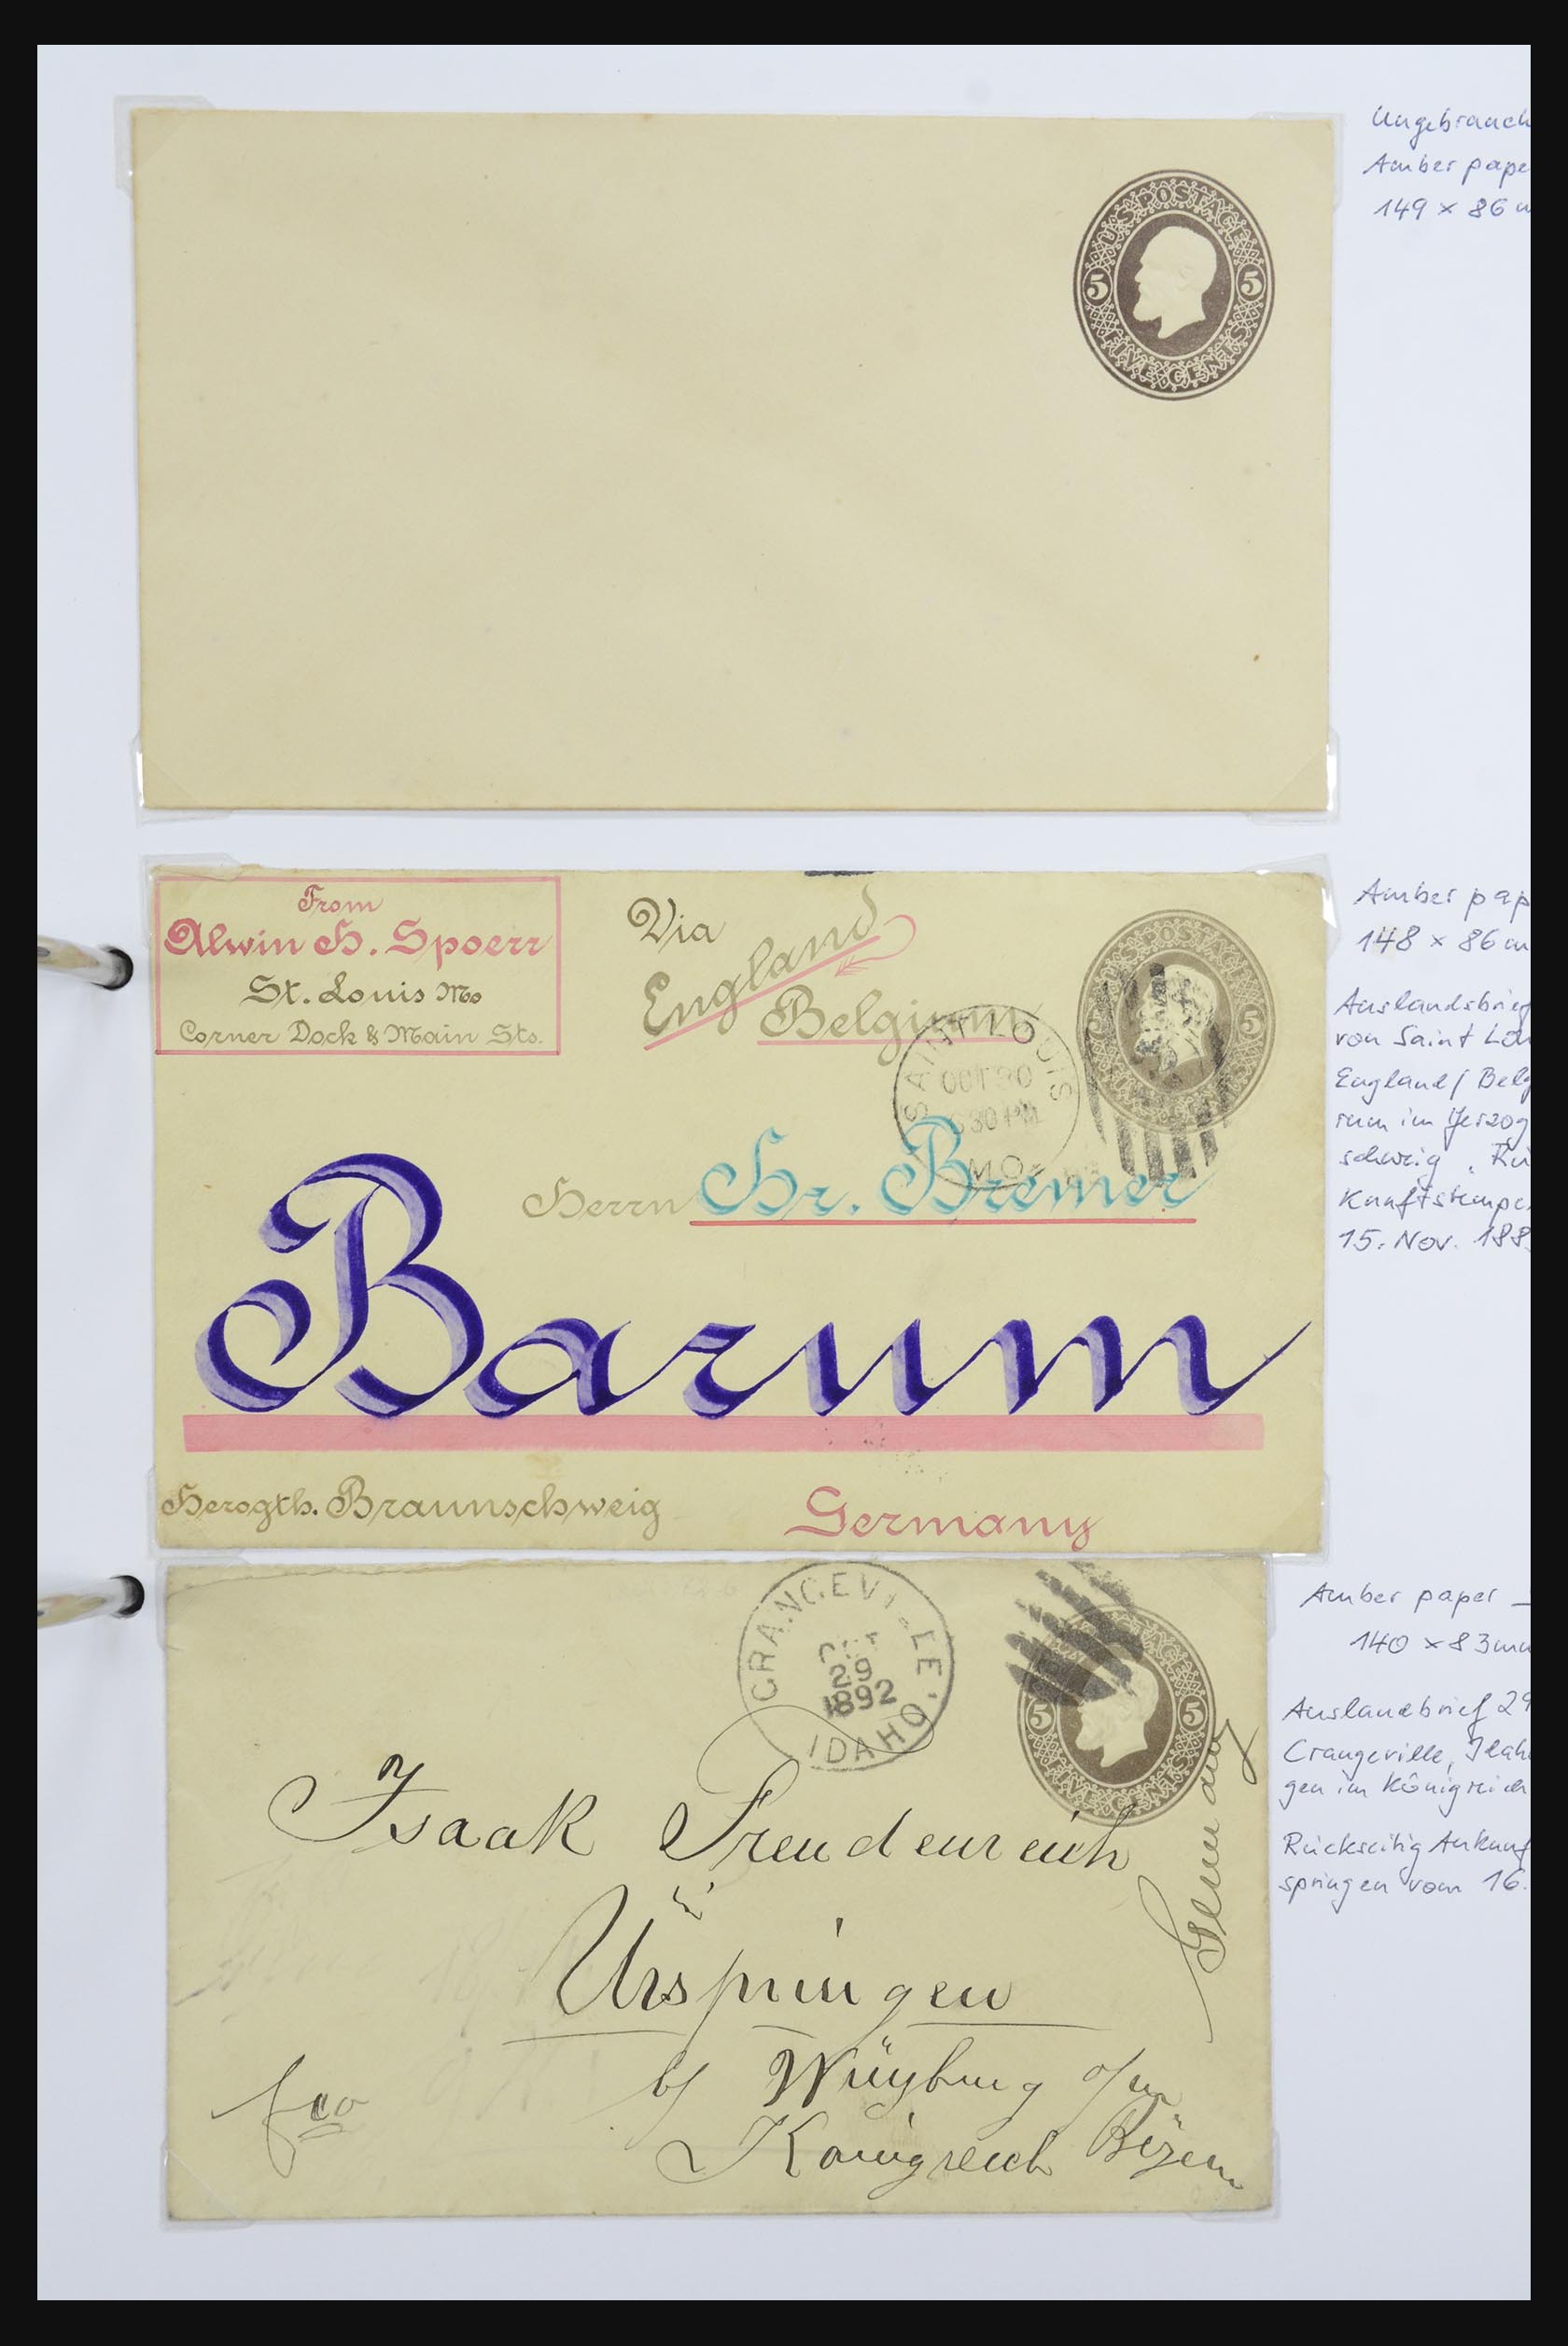 Ungebrauch
Amber pape
149 × 86
U.S. POSTAGE
5 5
FIVE CENTS
From
Alwin H. Spoerr
St. Louis Mo
Corner Dock & Main Sts.
Via
England
Belgium
U.S. POSTAGE
5
SAINT LOUIS
OCT 30
630 PM
MO
Herrn Hr. Bremer
Barum
Herogth. Braunschweig
Germany
Amber pap
148 × 86
Auslandsbrief
von Saint Lou
England / Belg
rum im Herzog
schweig
kunftstempe
15. Nov. 188
GRANGEVILLE
29
1892
IDAHO
5 5
FIVE CENTS
Isaak Freudenreich
Urspringen
b/ Würzburg a/m
Königreich Bayern
fco
Germany
Amber paper
140 × 83 mm
Auslandbrief 29
Crangeville, Idah
gen im Königreich
Rückseitig Ankunf
springen vom 16.